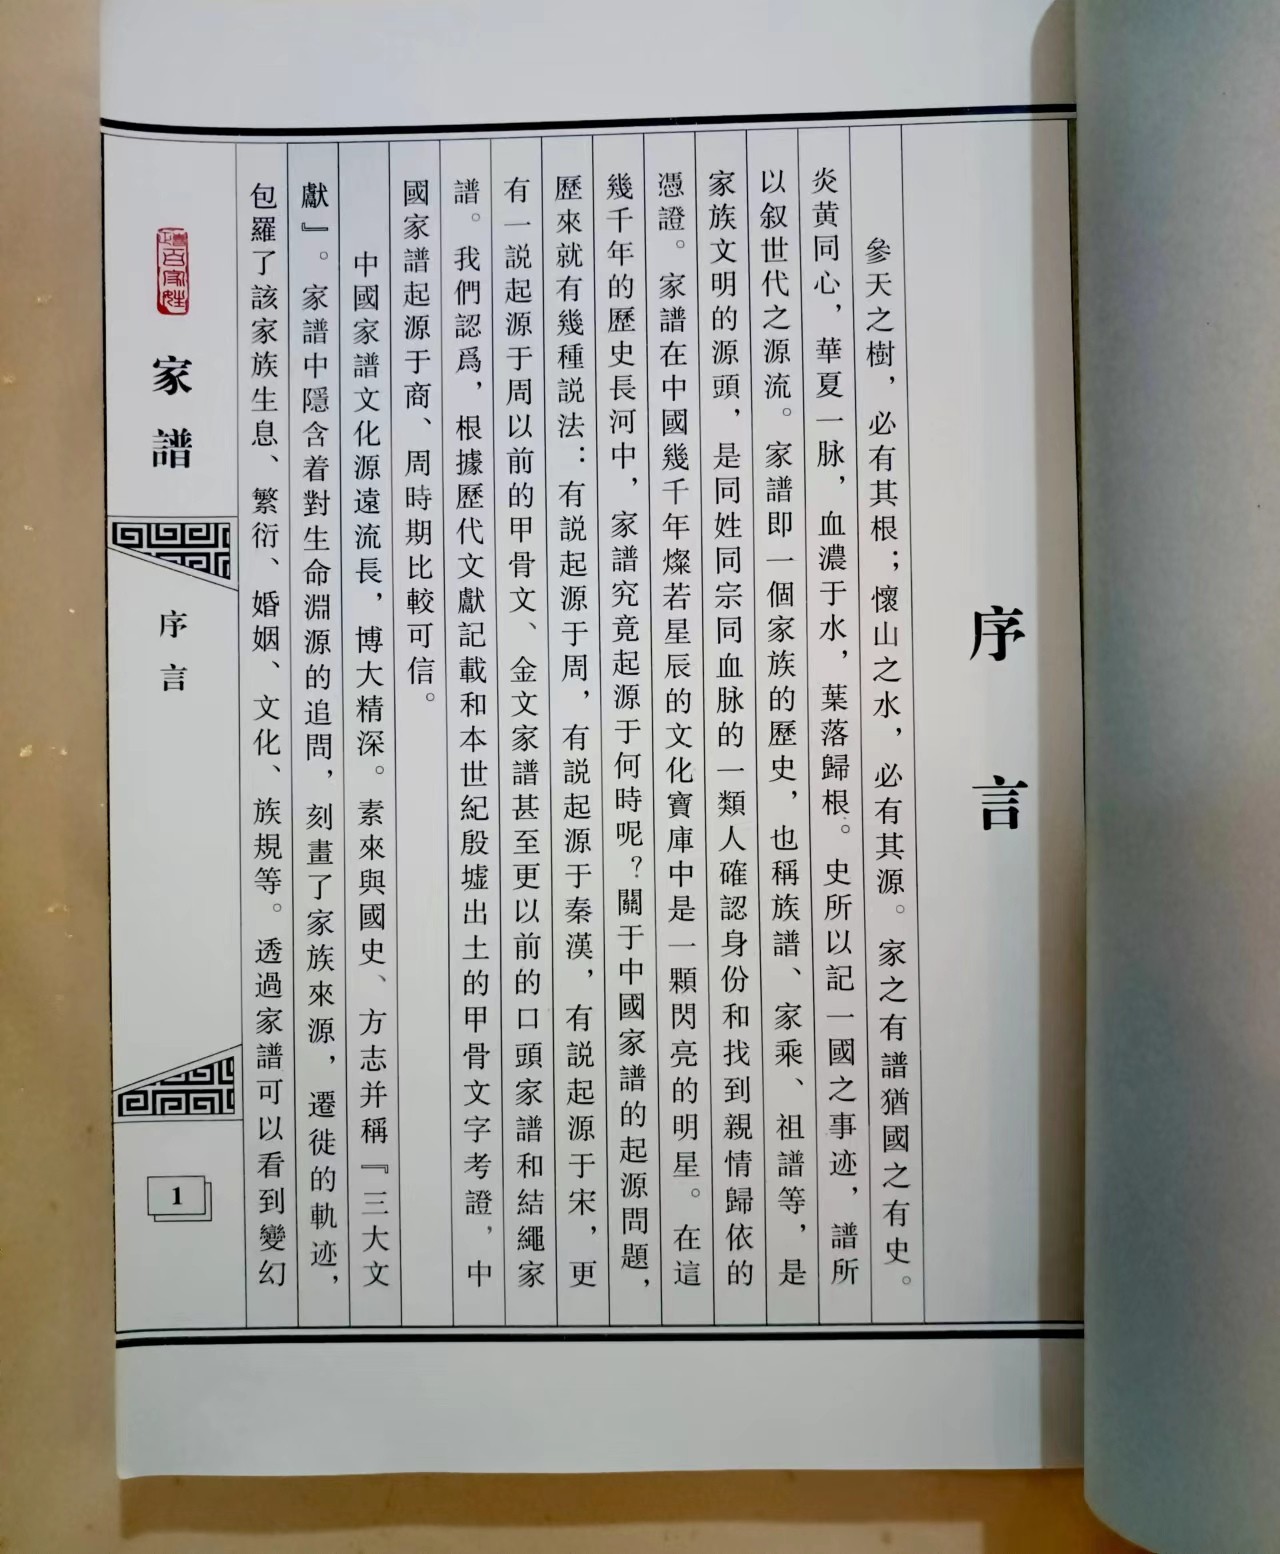 序言
參天之樹，必有其根；懷山之水，必有其源。家之有譜猶國之有史。
炎黄同心，華夏一脉，血濃于水，葉落歸根。史所以記一國之事迹，譜所
以叙世代之源流。家譜即一個家族的歷史，也稱族譜、家乘、祖譜等，是
家族文明的源頭，是同姓同宗同血脉的一類人確認身份和找到親情歸依的
憑證。家譜在中國幾千年燦若星辰的文化寶庫中是一顆閃亮的明星。在這
幾千年的歷史長河中，家譜究竟起源于何時呢？關于中國家譜的起源問題，
歷來就有幾種説法：有説起源于周，有説起源于秦漢，有説起源于宋，更
有一説起源于周以前的甲骨文、金文家譜甚至更以前的口頭家譜和結繩家
譜。我們認爲，根據歷代文獻記載和本世紀殷墟出土的甲骨文字考證，中
國家譜起源于商、周時期比較可信。
中國家譜文化源遠流長，博大精深。素來與國史、方志并稱『三大文
獻』。家譜中隱含着對生命淵源的追問，刻畫了家族來源，遷徙的軌迹，
包羅了該家族生息、繁衍、婚姻、文化、族規等。透過家譜可以看到變幻
百家姓
家譜
序言
1